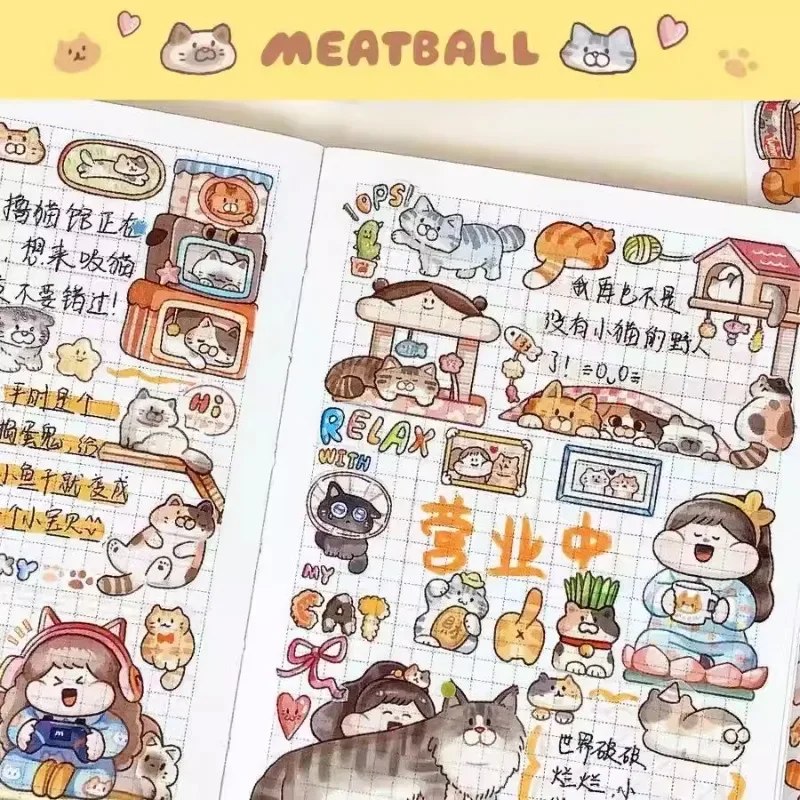 MEATBALL
撸猫馆正在
，想来吸猫
不要错过！
平时是个
捣蛋鬼，给
小鱼干就变成
个小宝贝
Hi
KY
OPS!
我再也不是
没有小猫的野人
了！=0,0=
RELAX
WITH
MY
CAT
营业中
世界破破
烂烂，小